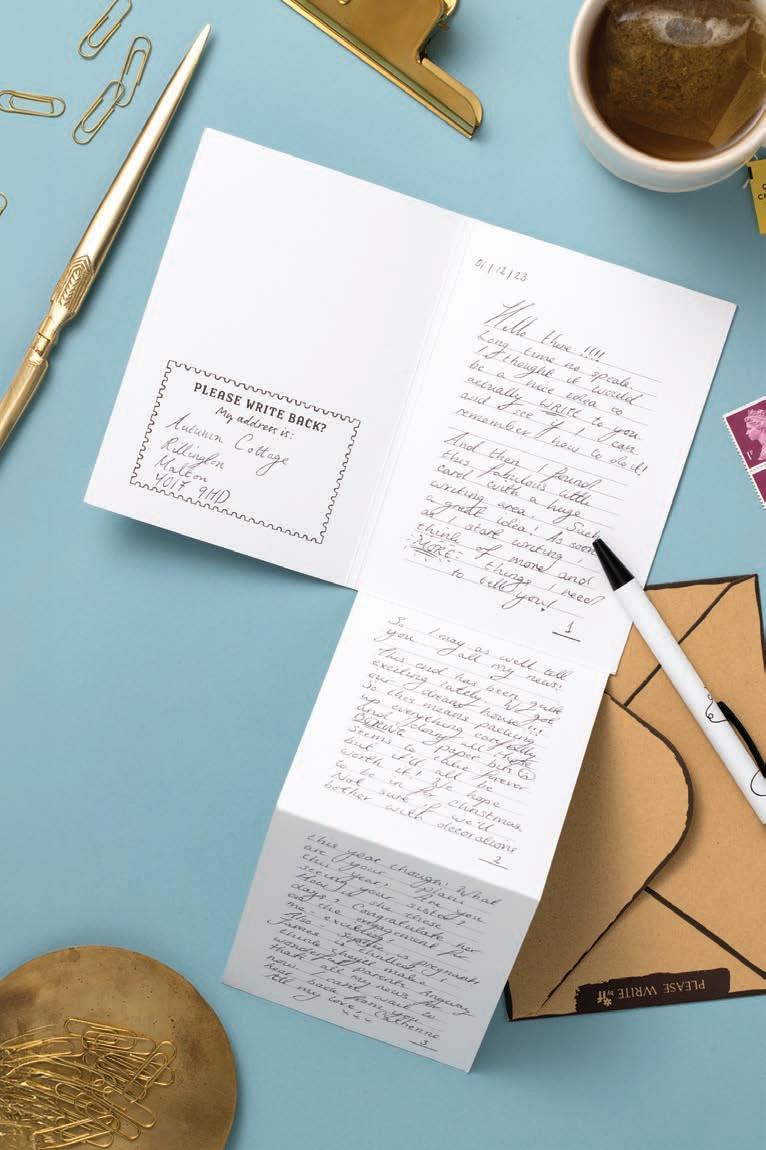 PLEASE WRITE BACK?
My address is:
Autumn Cottage
Rillington
Malton
YO17 9HD
01/12/23
Hello there !!!!
Long time no speak.
I thought it would
be a nice idea to
actually WRITE to you
and see if I can
remember how to do it!
And then I found
this fabulous little
card with a huge
writing area! Such
a great idea! As soon
as I start writing, I
think of more and
MORE things I need
to tell you!
1
So I may as well tell
you all my news!
This end has been quite
exciting lately. We got
our dream house!!!
So this means packing
up everything carefully
and doing all those
BORING paper bits
seems to take forever
but it'll all be
worth it! We hope
to be in for Christmas
Not sure if we'll
bother with decorations
2
this year though! What
are your plans for you
this year?
How is she these
days? Congratulate her
on the engagement for
me - exciting!
Also sister is pregnant!
James is thrilled! I
think they'll make
wonderful parents. Anyway
that's all my news for
now. I can't wait to
hear back from you.
All my love, Catherine
x x x
3
PLEASE WRITE by ff
1st